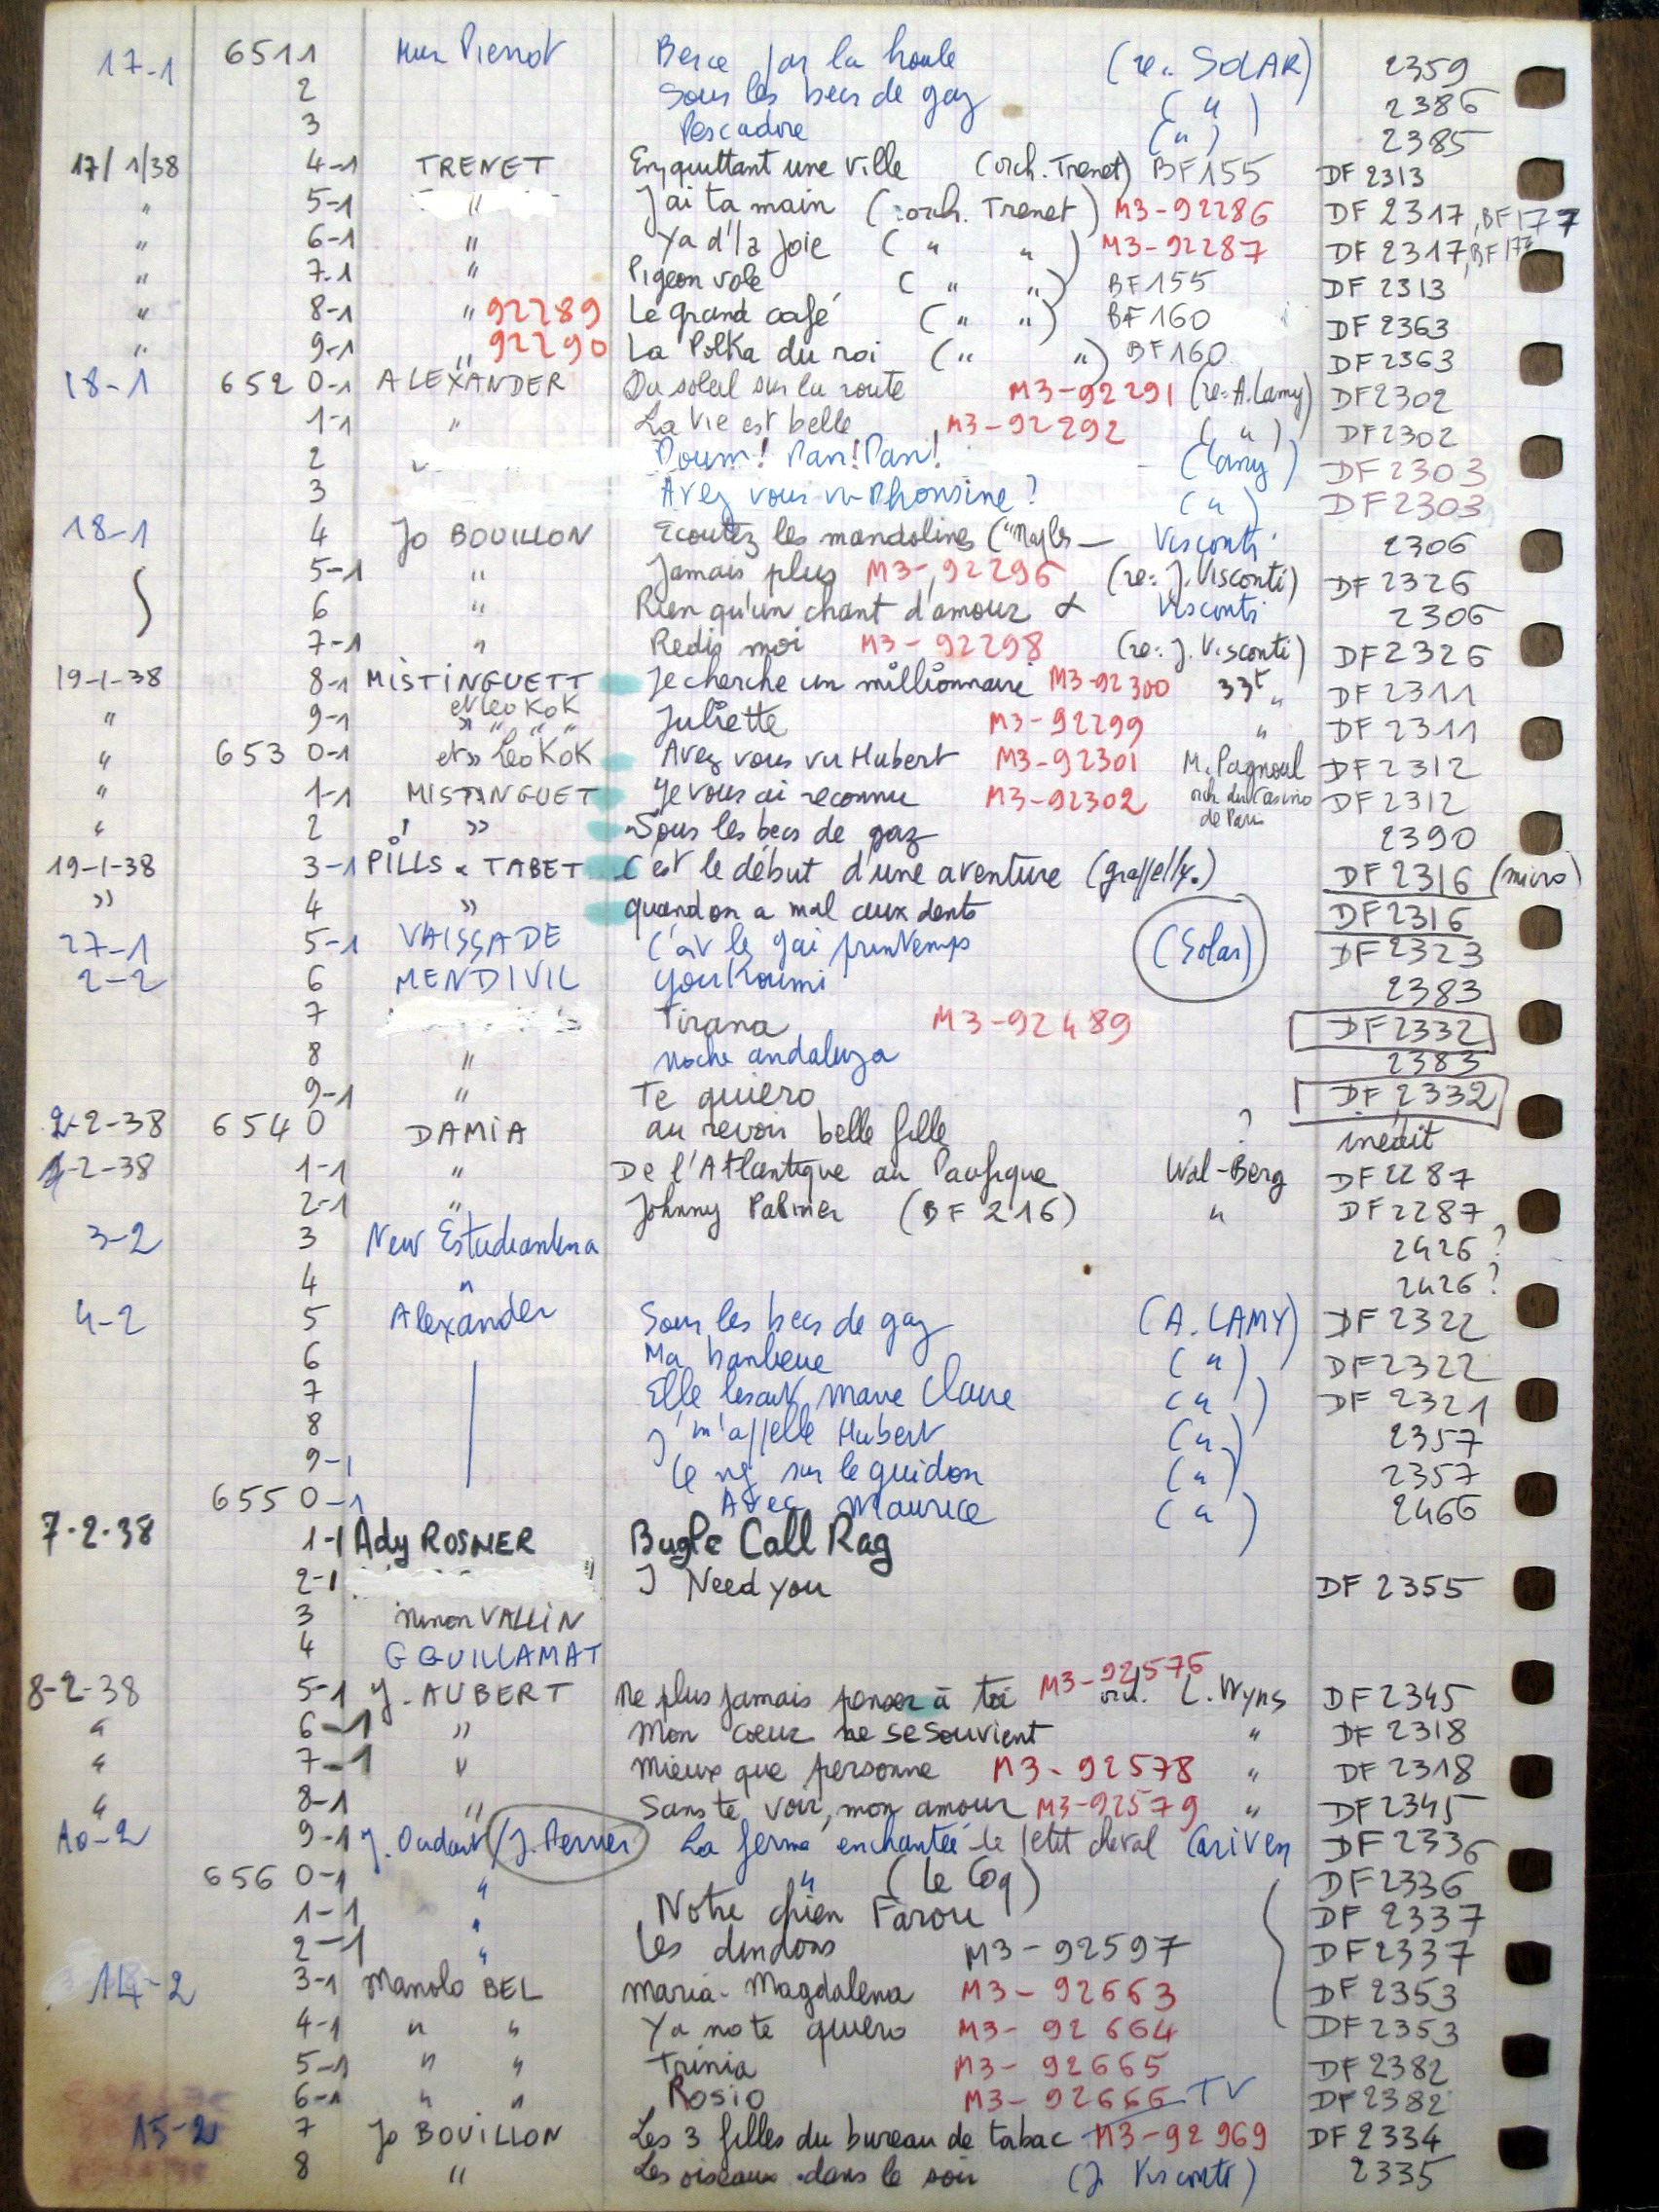 17-1 6511 Mus Pierrot Berce par la houle (re: SOLAR) 2359
2 Sous les becs de gaz ( " ) 2386
3 Pescadore ( " ) 2385
17/1/38 4-1 TRENET En quittant une ville (orch. Trenet) BF155 DF 2313
" 5-1 " J'ai ta main (orch. Trenet) M3-92286 DF 2317, BF177
" 6-1 " Ya d'la joie ( " " ) M3-92287 DF 2317, BF177
" 7.1 " Pigeon vole ( " " ) BF155 DF 2313
" 8-1 " 92289 Le grand café ( " " ) BF160 DF 2363
" 9-1 " 92290 La Polka du roi ( " " ) BF160 DF 2363
18-1 652 0-1 ALEXANDER Du soleil sur la route M3-92291 (re: A.Lamy) DF2302
1-1 " La vie est belle M3-92292 ( " ) DF2302
2 " Poum! Pan! Pan! (Lamy) DF2303
3 Avez vous vu Phonsine? ( " ) DF2303
18-1 4 Jo BOUILLON Ecoutez les mandolines ("Naples — Visconti 2306
5-1 " Jamais plus M3-92296 (re: J. Visconti) DF 2326
6 " Rien qu'un chant d'amour Visconti 2306
7-1 " Redis moi M3-92298 (re: J. Visconti) DF2326
19-1-38 8-1 MISTINGUETT Je cherche un millionnaire M3-92300 33t " DF 2311
et Leo KoK
" 9-1 " " " " Juliette M3-92299 " DF 2311
" 653 0-1 et " Leo KoK Avez vous vu Hubert M3-92301 M. Pagnoul DF 2312
" 1-1 MISTINGUET Je vous ai reconnu M3-92302 orch. du Casino de Paris DF 2312
" 2 " Sous les becs de gaz 2390
19-1-38 3-1 PILLS & TABET C'est le début d'une aventure (grappelly.) DF 2316 (micro)
" 4 " quand on a mal aux dents DF2316
27-1 5-1 VAISSADE C'est le gai printemps (Solar) DF2323
2-2 6 MENDIVIL Youkoumi 2383
7 Tirana M3-92489 DF2332
8 " Noche andaluza 2383
9-1 " Te quiero DF 2332
2-2-38 6540 DAMIA au revoir belle fille ? inédit
2-2-38 1-1 " De l'Atlantique au Pacifique Wal-Berg DF 2287
2-1 " Johnny Palmer (BF 216) " DF2287
3-2 3 New Estudiantina 2426 ?
4 " 2426 ?
4-2 5 Alexander Sous les becs de gaz (A. LAMY) DF 2322
6 Ma banlieue ( " ) DF2322
7 Elle lisait Marie Claire ( " ) DF 2321
8 J'm'appelle Hubert ( " ) 2357
9-1 Le nez sur le guidon ( " ) 2357
655 0-1 Avec Maurice ( " ) 2466
7-2-38 1-1 Ady ROSNER Bugle Call Rag
2-1 " I Need you DF 2355
3 Ninon VALLIN
4 G GUILLAMAT
8-2-38 5-1 J. AUBERT Ne plus jamais penser à toi M3-92576 orch. L. Wyns DF 2345
" 6-1 " Mon coeur ne se souvient " DF 2318
" 7-1 " Mieux que personne M3-92578 " DF 2318
" 8-1 " Sans te voir, mon amour M3-92579 " DF2345
10-2 9-1 J. Oudart/J. Perrier La ferme enchantée le petit cheval Cariven DF 2336
656 0-1 " " (Le Coq) DF2336
1-1 " Notre chien Farou DF 2337
2-1 " Les dindons M3-92597 DF2337
14-2 3-1 Manolo BEL Maria-Magdalena M3-92663 DF 2353
4-1 " " Ya no te quiero M3-92664 DF2353
5-1 " " Trinia M3-92665 DF 2382
6-1 " " Rosio M3-92666 TV DF2382
15-2 7 Jo BOUILLON Les 3 filles du bureau de tabac M3-92969 DF 2334
8 " Les oiseaux dans le soir (J Visconti) 2335